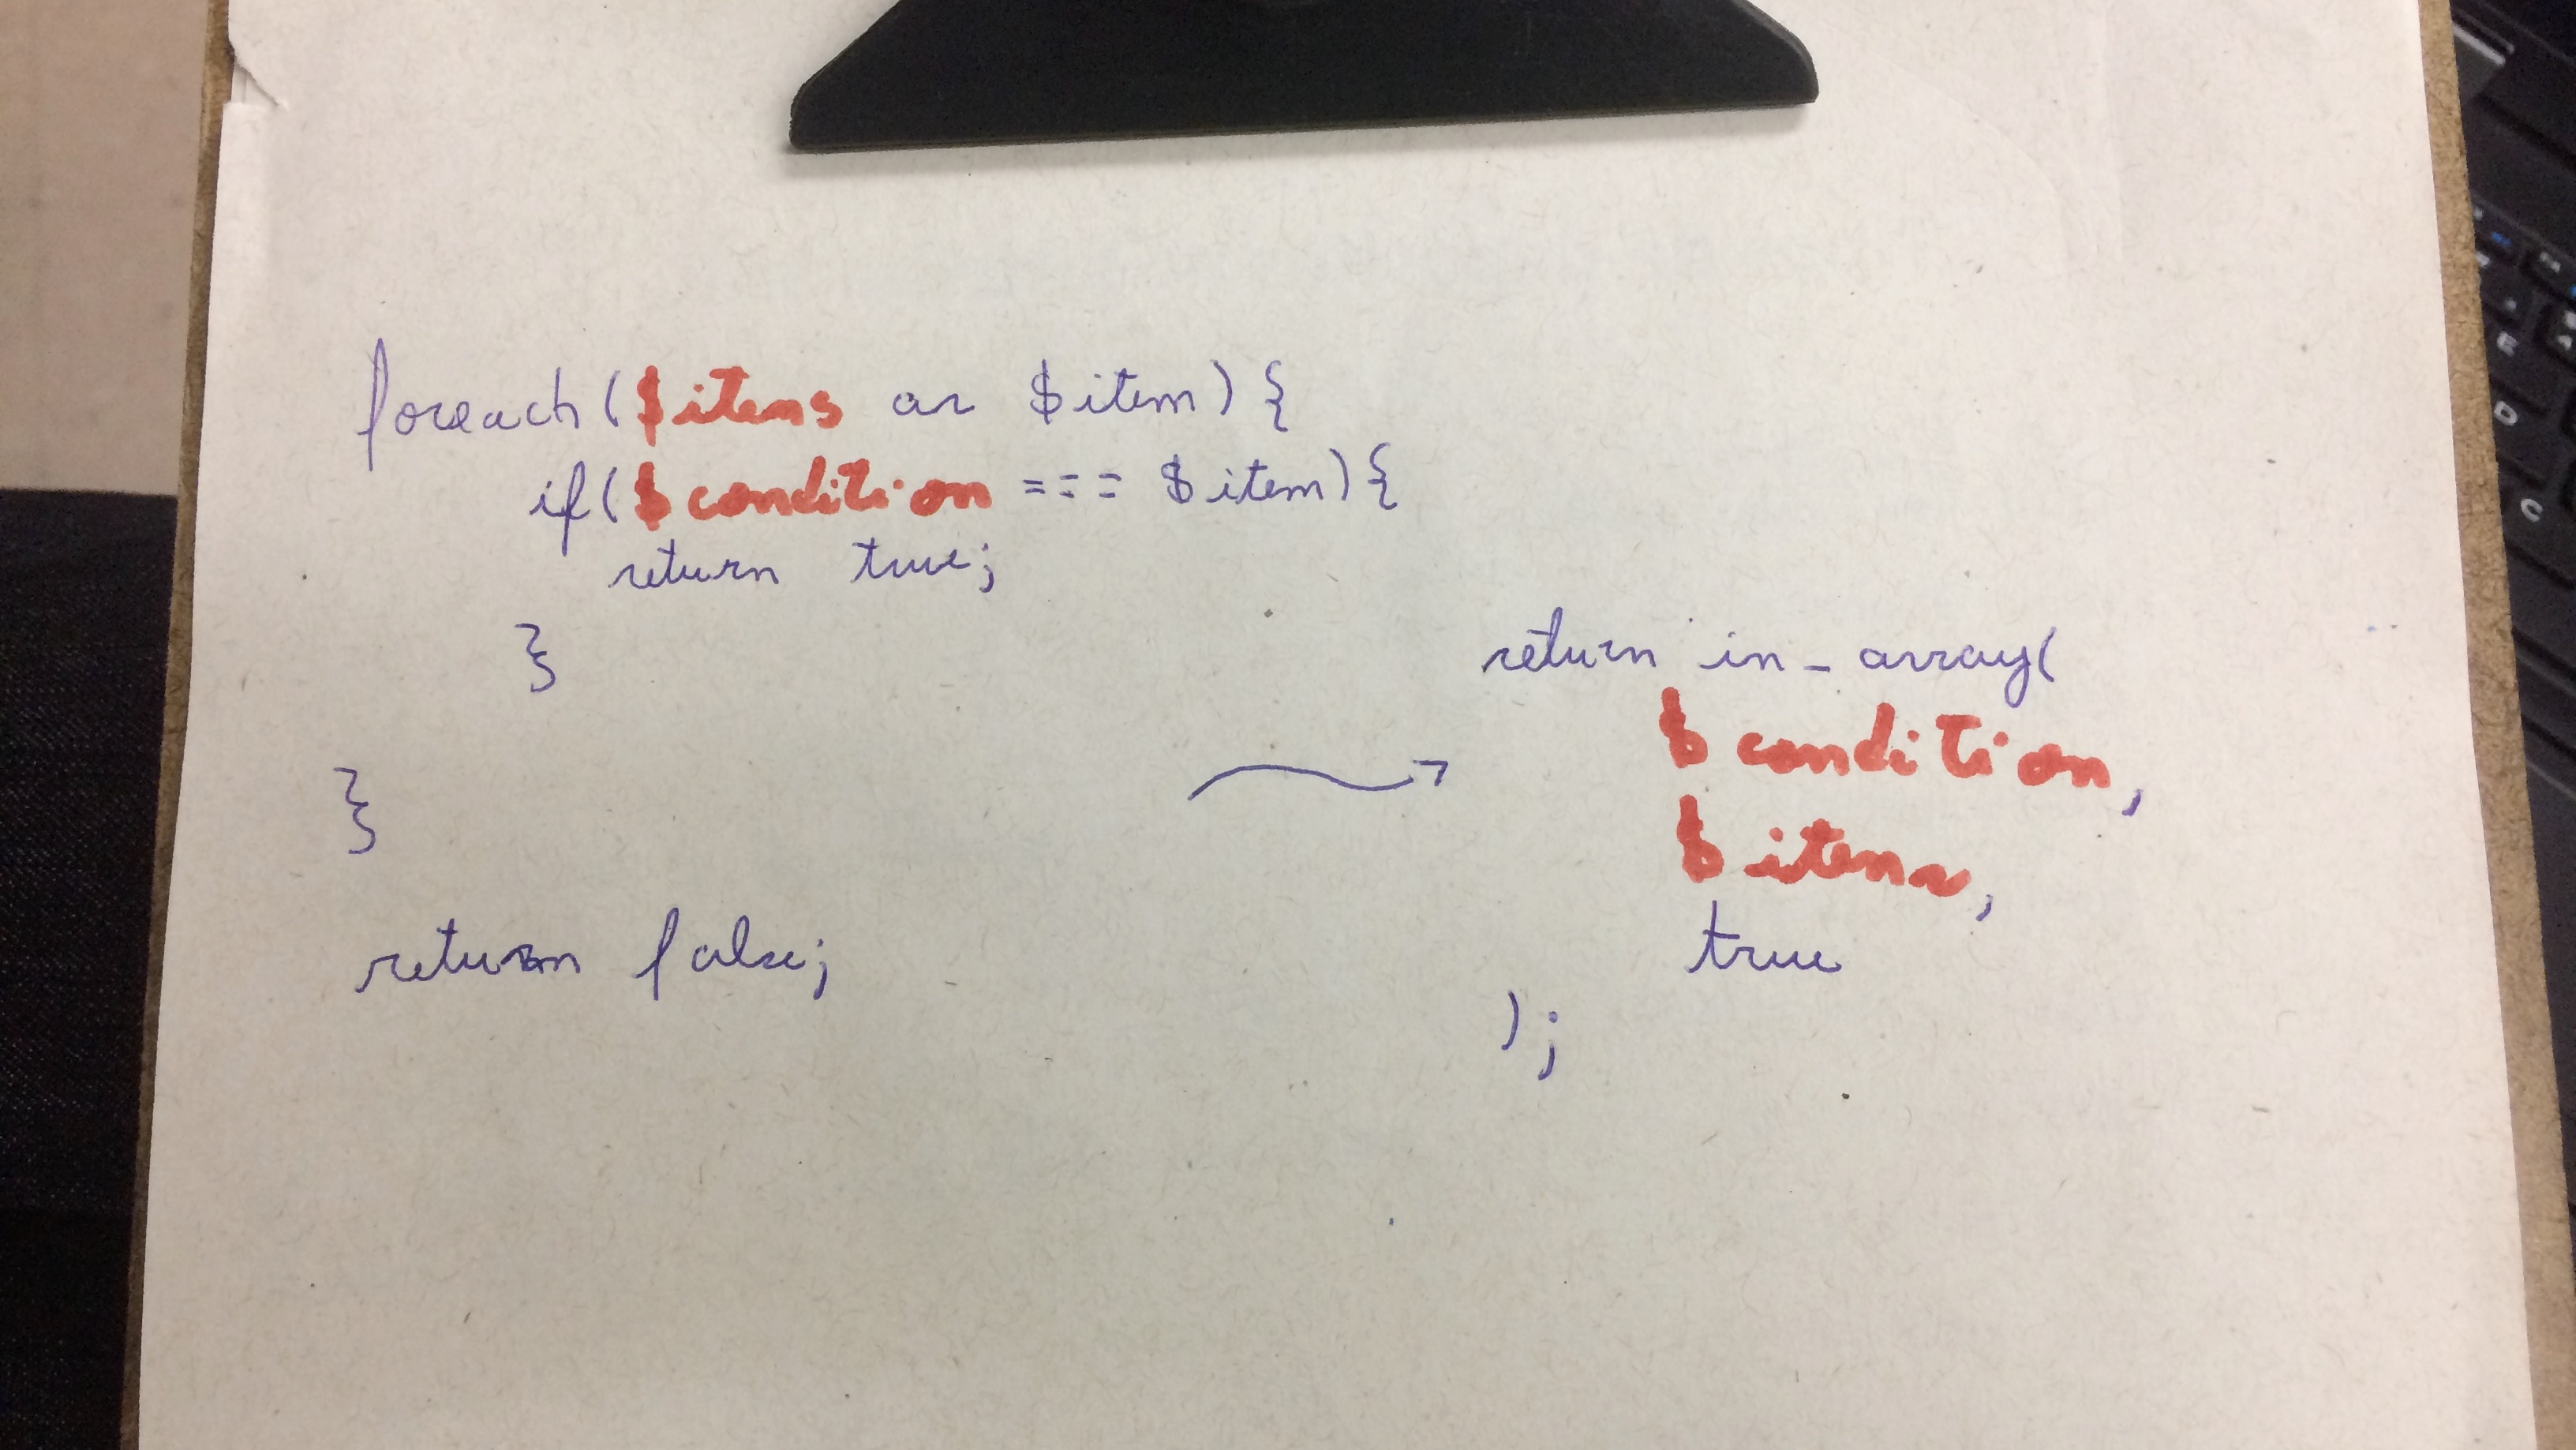 foreach($itens as $item){
if($condition === $item){
return true;
}
}
return false;
return in_array(
$condition,
$itens,
true
);
E
D
C